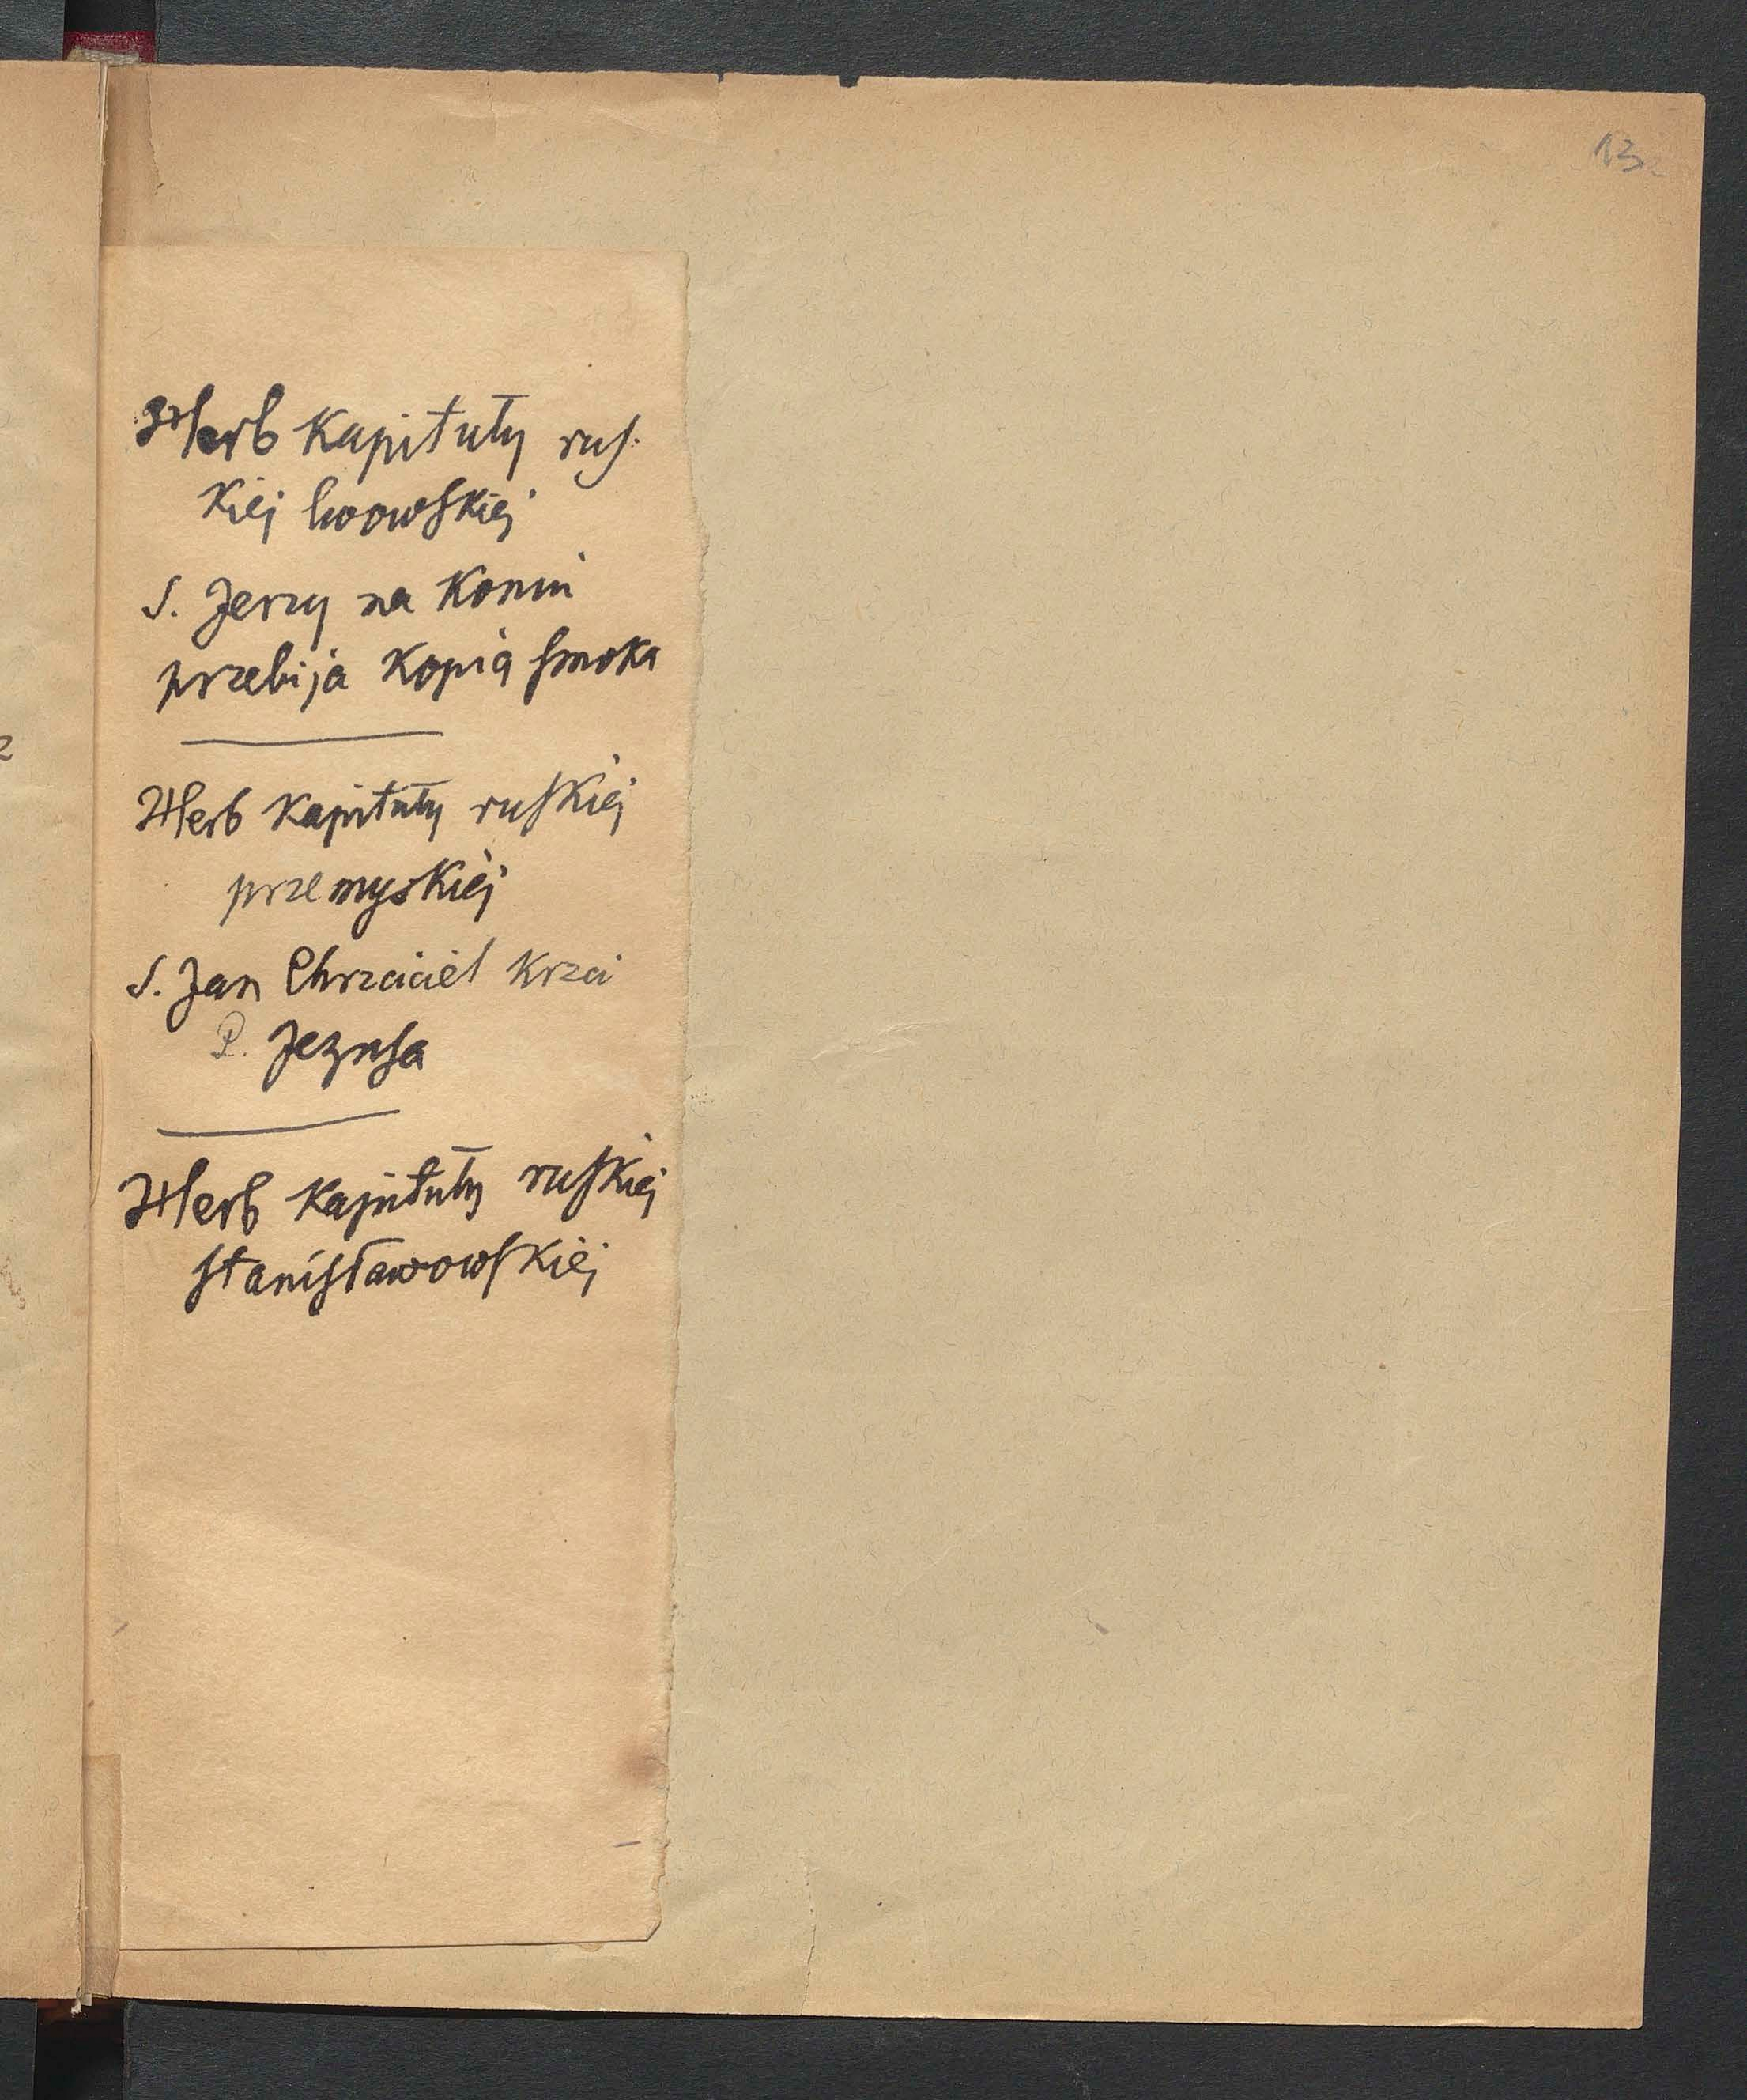 13
Herb Kapituły rus-
kiej lwowskiej
S. Jerzy na Koniu
przebija Kopią smoka
Herb Kapituły ruskiej
przemyskiej
S. Jan Chrzciciel Krzci
P. Jezusa
Herb Kapituły ruskiej
stanisławowskiej